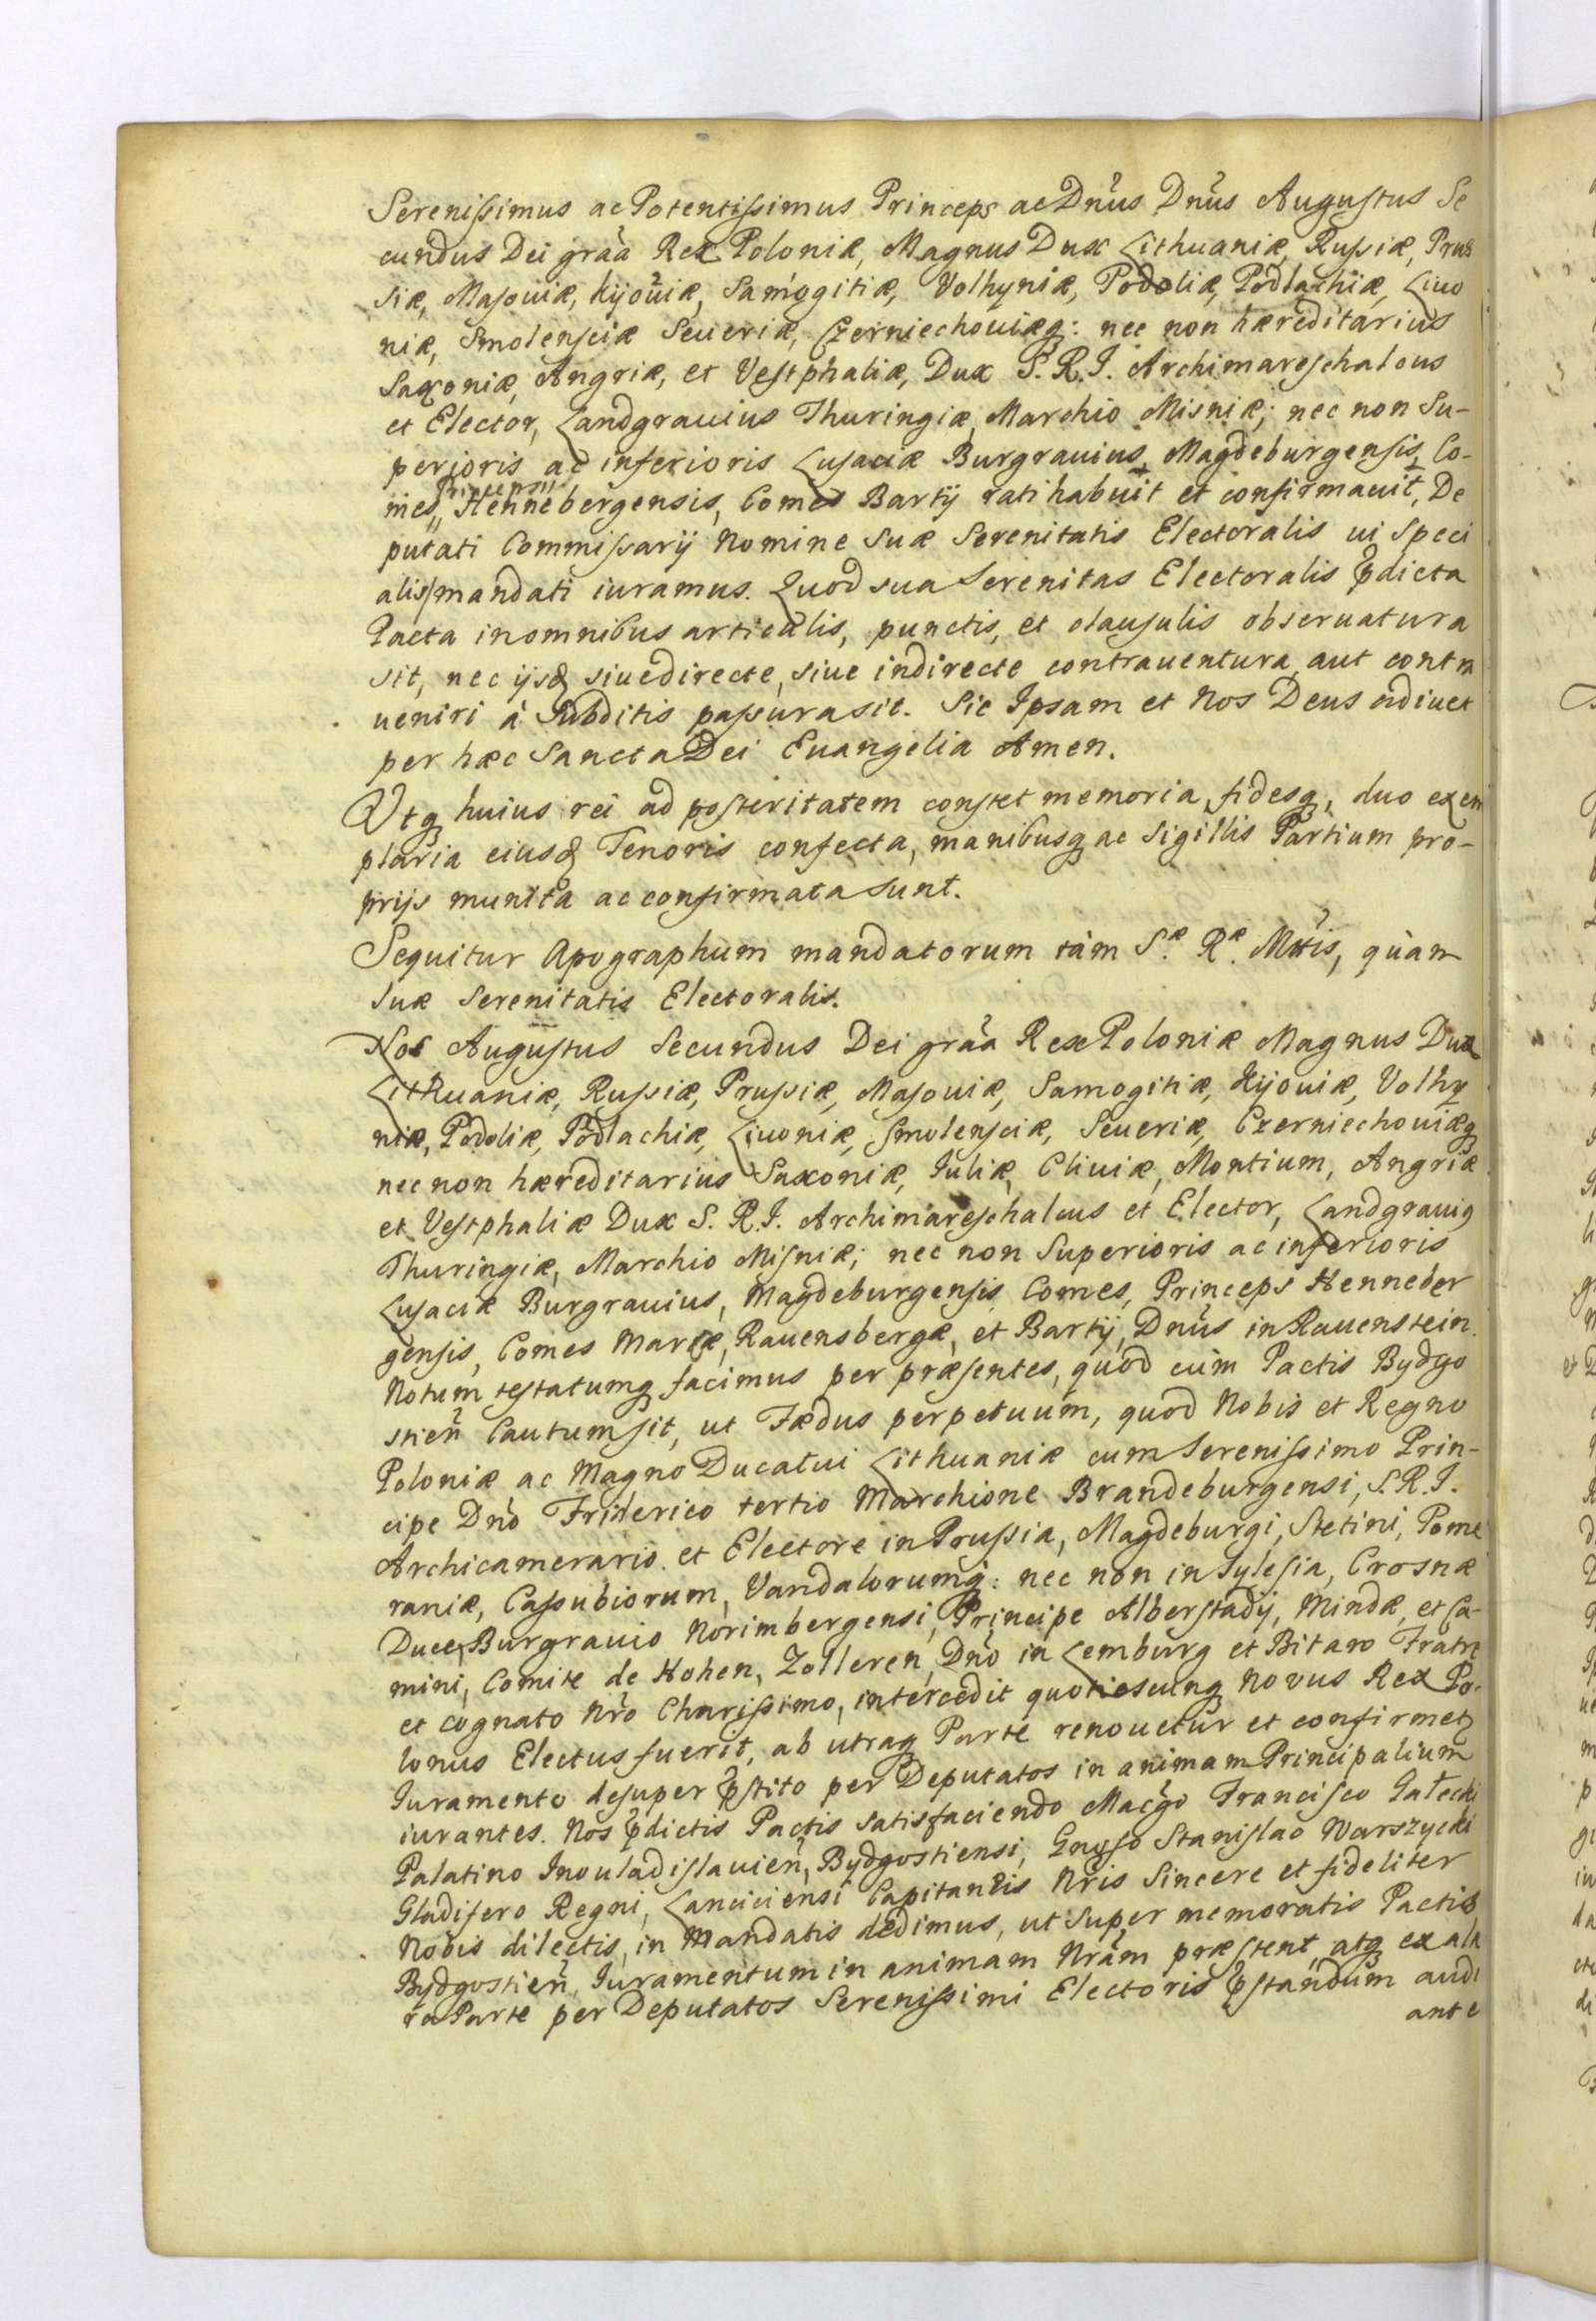 Serenissimus ac Potentissimus Princeps ac Dnûs Dnûs Augustus Se
cundus Dei grãa Rex Poloniæ, Magnus Dux Lithuaniæ, Russiæ, Prus
siæ, Masouiæ, Kijouiæ, Samogitiæ, Volhyniæ, Podoliæ, Podlachiæ, Liuo
niæ, Smolensciæ Seueriæ, Czerniechouiæq: nec non hæreditarius
Saxoniæ, Angriæ, et Vestphaliæ, Dux S. R. I. Archimareschalcus
et Elector, Landgrauius Thuringiæ, Marchio Misniæ; nec non Su-
perioris ac inferioris Lusaciæ Burgrauius Magdeburgensis, Co-
mes Princeps Hennebergensis, Comes Bartij ratihabuit et confirmauit, De
putati Commissarij Nomine Suæ Serenitatis Electoralis ui Speci
alis mandati iuramus. Quod sua Serenitas Electoralis p̃dicta
Pacta in omnibus articulis, punctis, et clausulis obseruatura
sit, nec ijsd siue directe, siue indirecte contrauentura, aut contra
ueniri à Subditis passura sit. Sic Ipsam et Nos Deus adiuet
per hæc Sancta Dei Euangelia Amen.
Vtq huius rei ad posteritatem constet memoria, fidesq, duo exem
plaria eiusd Tenoris confecta, manibusq ac Sigillis Partium pro-
prijs munita ac confirmata sunt.
Sequitur Apographum mandatorum tàm S.æ R.æ Mttis, quàm
Suæ Serenitatis Electoralis.
Nos Augustus Secundus Dei grãa Rex Poloniæ Magnus Dux
Lithuaniæ, Russiæ, Prussiæ, Masouiæ, Samogitiæ, Kijouiæ, Volhy
niæ, Podoliæ, Podlachiæ, Liuoniæ, Smolensciæ, Seueriæ, Czerniechouiæq
nec non hæreditarius Saxoniæ, Iuliæ, Cliuiæ, Montium, Angriæ
et Vestphaliæ Dux S. R. I. Archimareschalcus et Elector, Landgrauig
Thuringiæ, Marchio Misniæ; nec non Superioris ac inferioris
Lusaciæ Burgrauius, Magdeburgensis Comes, Princeps Henneber
gensis, Comes Marcæ, Rauensbergæ, et Bartij, Dnûs in Rauenstein.
Notum testatumq facimus per præsentes, quod cùm Pactis Bydgo
stień Cautum sit, ut Fædus perpetuùm, quod Nobis et Regno
Poloniæ ac Magno Ducatui Lithuaniæ cum Serenissimo Prin-
cipe Dnõ Friderico tertio Marchione Brandeburgensi, S. R. I.
Archicamerario et Electore in Prussia, Magdeburgi, Stetini, Pome
raniæ, Cassubiorum, Vandalorumq: nec non in Sylesia, Crosnæ
Duce, Burgrauio Norimbergensi, Principe Alberstadij, Mindæ, et Ca-
mini, Comite de Hohen, Zolleren, Dnõ in Lemburg et Bitaw Fratre
et cognato Nrõ Charissimo, intercedit quotiescunq novus Rex Po-
lonus Electus fuerit, ab utraq Parte renouetur et confirmet
Iuramento desuper p̃stito per Deputatos in animam Principalium
iurantes. Nos p̃dictis Pactis satisfaciendo Macg̃o Francisco Gałecki
Palatino Inouladislauień, Bydgostiensi, Gnsõ Stanislao Warszycki
Gladifero Regni, Lanciciensi Capitaneis Nris Sincere et fideliter
Nobis dilectis, in Mandatis dedimus, ut super memoratis Pactis
Bydgostień, Iuramentum in animam Nrãm præstent, atq ex alt
ra Parte per Deputatos Serenissimi Electoris p̃standum audi
ante